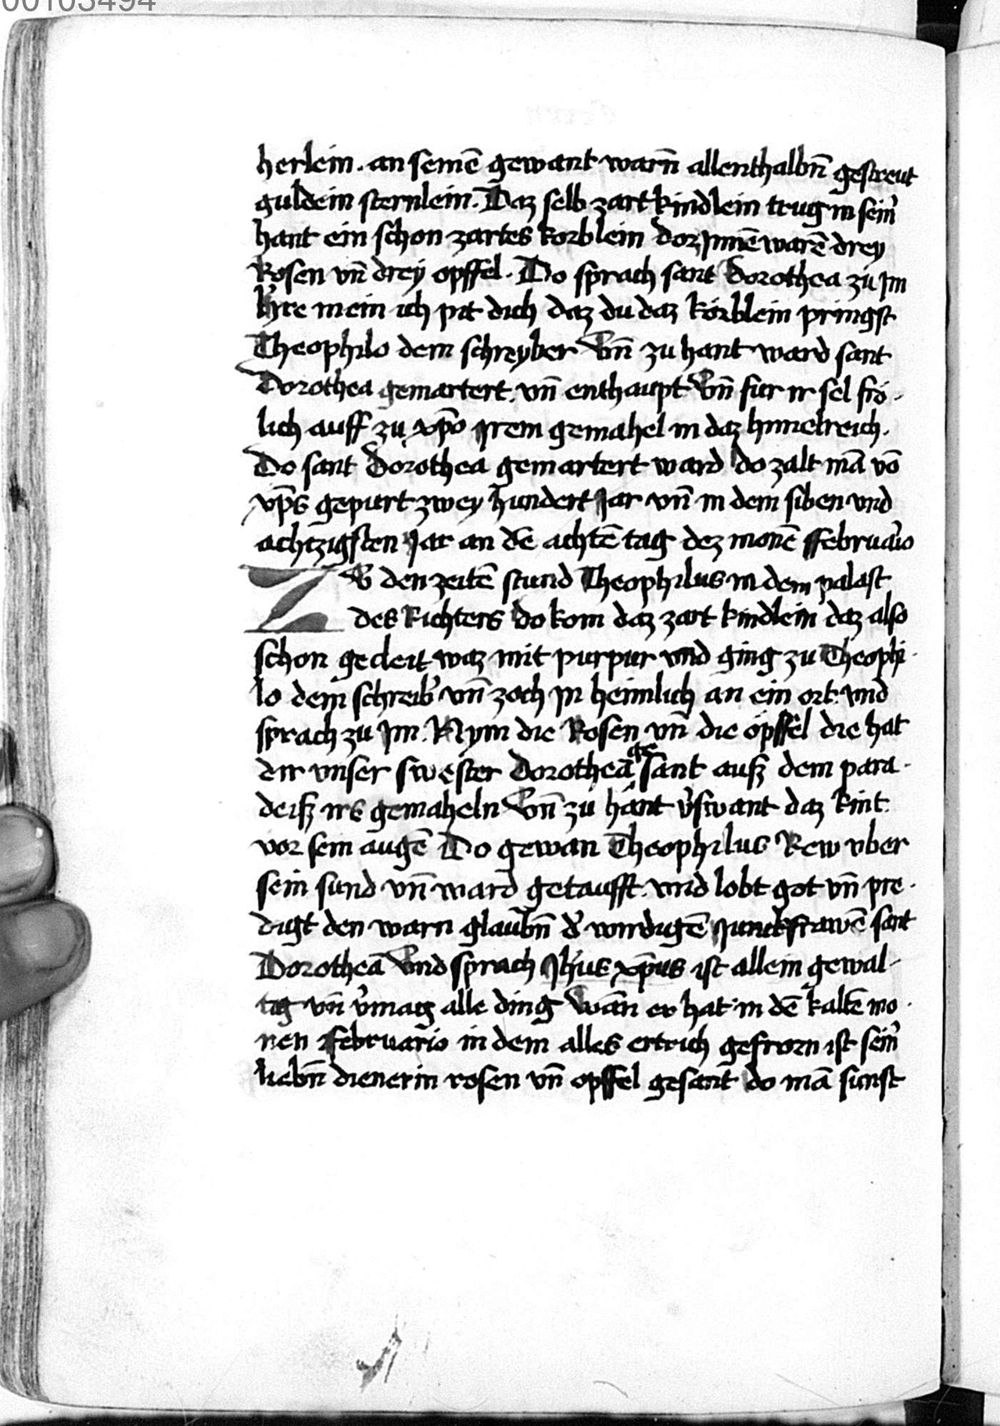 00103494
herlein · an seinē gewant warn̄ allenthalbn̄ gestreut
guldein sternlein · Daz selb zart kindlein trug in sein̄
hant ein schon zartes korblein dorJnnē warē drey
Rosen vn̄ drey opffel · Do sprach sant Dorothea zu Jm
h're mein ich pit dich daz du daz körblein pringst
Theophilo dem schreyber Vn̄ zu hant ward sant
Dorothea gemartert · vn̄ enthaupt Vn̄ fur ir sel frö-
lich auff zu xp̄o Jrem gemahel in daz himelreich ·
Do sant Dorothea gemartert ward do zalt mā vō
xp̄s gepurt zwey hundert Jar vn̄ in dem siben vnd
achtzigsten Jar an dē achtē tag dez monē ffebruario
ZV den zeitē stund Theophilus in dem palast
des Richters do kom daz zart kindlein daz also
schon gecleit waz mit purpur vnd ging zu Theophi-
lo dem schreib' vn̄ zoch jn heimlich an ein ort vnd
sprach zu Jm · Nym die Rosen vn̄ die öpffel die hat
dir vnser swester Dorothea gesant auß dem para-
deiß irs gemaheln Vn̄ zu hant v'swant daz kint
vor sein augē Do gewan Theophilus Rew vber
sein sund vn̄ ward getaufft · vnd lobt got vn̄ pre-
digt den warn glaubn̄ d' wirdigē Junckfrawē sant
Dorothea Vnd sprach Jh̄us xp̄us ist allein gewal-
tig vn̄ v'mag alle ding Wān er hat in dē kaltē mo-
nen februario in dem alles ertrich gefrorn ist sein̄
liebn̄ dienerin rosen vn̄ opffel gesant do mā sunst